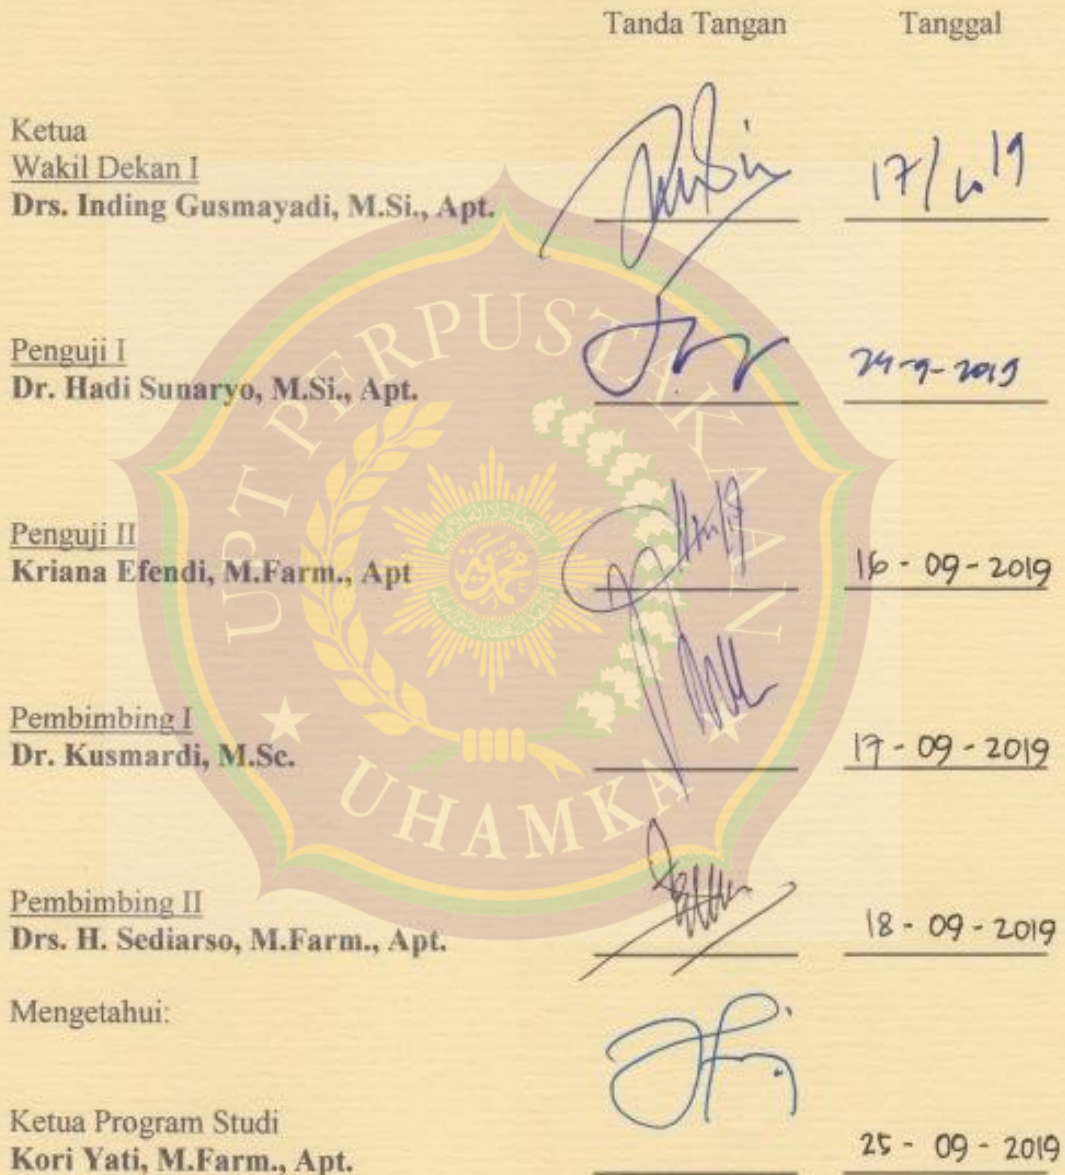 Tanda Tangan Tanggal
Ketua
Wakil Dekan I
Drs. Inding Gusmayadi, M.Si., Apt. 17/ 19
Penguji I
Dr. Hadi Sunaryo, M.Si., Apt. 24-9-2019
Penguji II
Kriana Efendi, M.Farm., Apt 16 - 09 - 2019
Pembimbing I
Dr. Kusmardi, M.Sc. 17 - 09 - 2019
Pembimbing II
Drs. H. Sediarso, M.Farm., Apt. 18 - 09 - 2019
Mengetahui:
Ketua Program Studi
Kori Yati, M.Farm., Apt. 25 - 09 - 2019
UPT PERPUSTAKAAN
UHAMKA